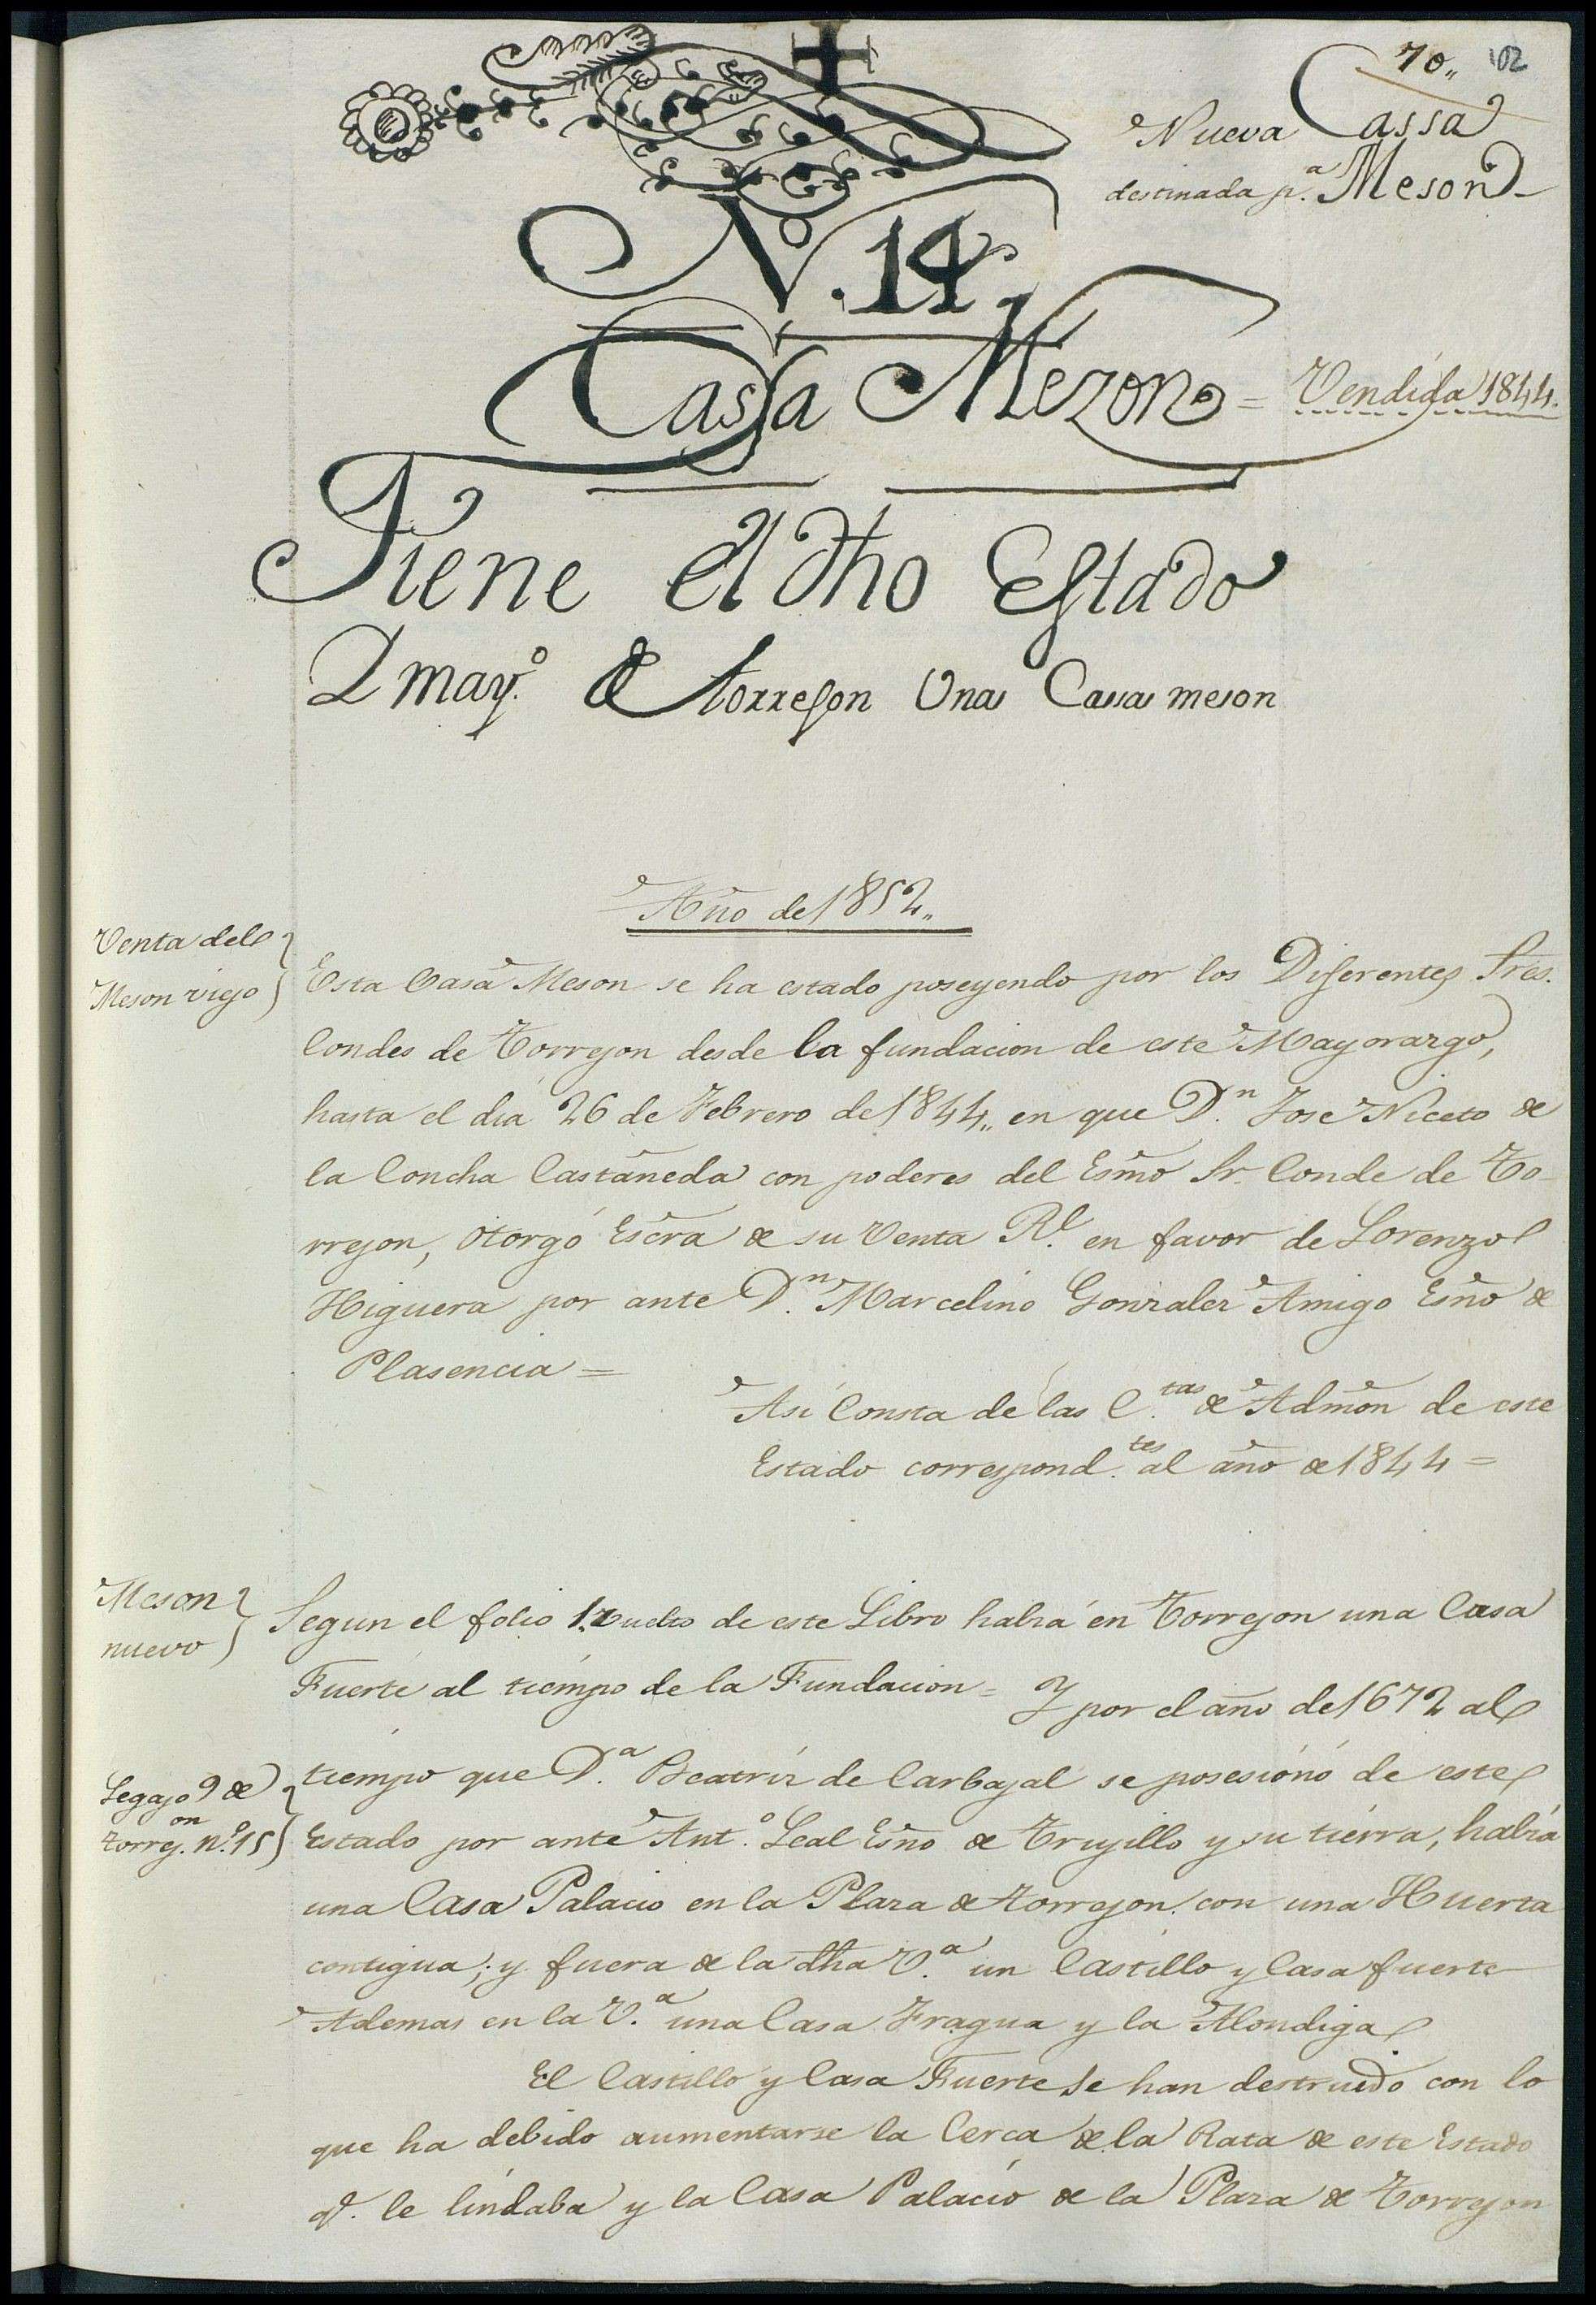 70,, 102
Nueva Cassa
destinada p.ª Meson
N.º 14
Cassa Mezon = Vendida 1844.
Tiene el dho Estado
I may.º de torrejon Una Cassa meson
Año de 1852,,
Venta del
Meson viejo
Esta Casa Meson se ha estado poseyendo por los Diferentes Sres.
Condes de Torrejon desde la fundacion de este Mayorazgo,
hasta el dia 26 de Febrero de 1844,, en que D.n Jose Niceto de
la Concha Castañeda con poderes del Esmo Sr. Conde de To-
rrejon, otorgó Escra de su Venta Rl. en favor de Lorenzo
Higuera por ante D.n Marcelino Gonzalez Amigo Esno de
Plasencia =
Asi Consta de las C.tas de Admon de este
Estado correspond.tes al año de 1844 =
Meson
nuevo
Segun el folio 1. vuelto de este Libro habia en Torrejon una Casa
Fuerte al tiempo de la Fundacion = Y por el año de 1672 al
Legajo 9 de
torrej.on n.º 15
tiempo que D.ª Beatriz de Carbajal se posesionó de este
Estado por ante Ant.º Leal Esno de Trujillo y su tierra, habia
una Casa Palacio en la Plaza de torrejon con una Huerta
contigua; y fuera de la dha V.ª un Castillo y Casa fuerte
Ademas en la V.ª una Casa Fragua y la Alondiga
El Castillo y Casa Fuerte se han destruido con lo
que ha debido aumentarse la Cerca de la Rata de este Estado
q.e le lindaba y la Casa Palacio de la Plaza de Torrejon